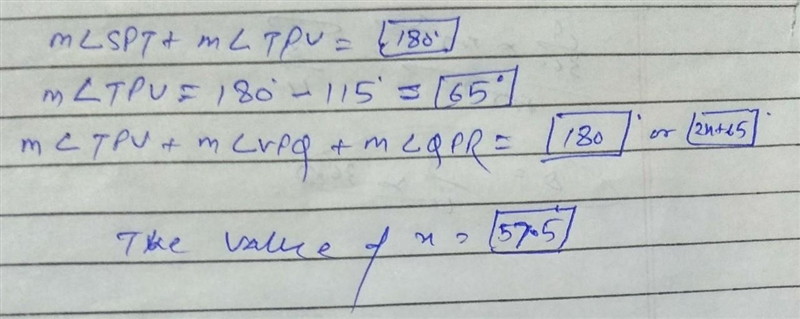 m∠SPT + m∠TPV = 180°
m∠TPV = 180° - 115° = 65°
m∠TPV + m∠VPQ + m∠QPR = 180° or 2x+65°
The value of x = 57.5